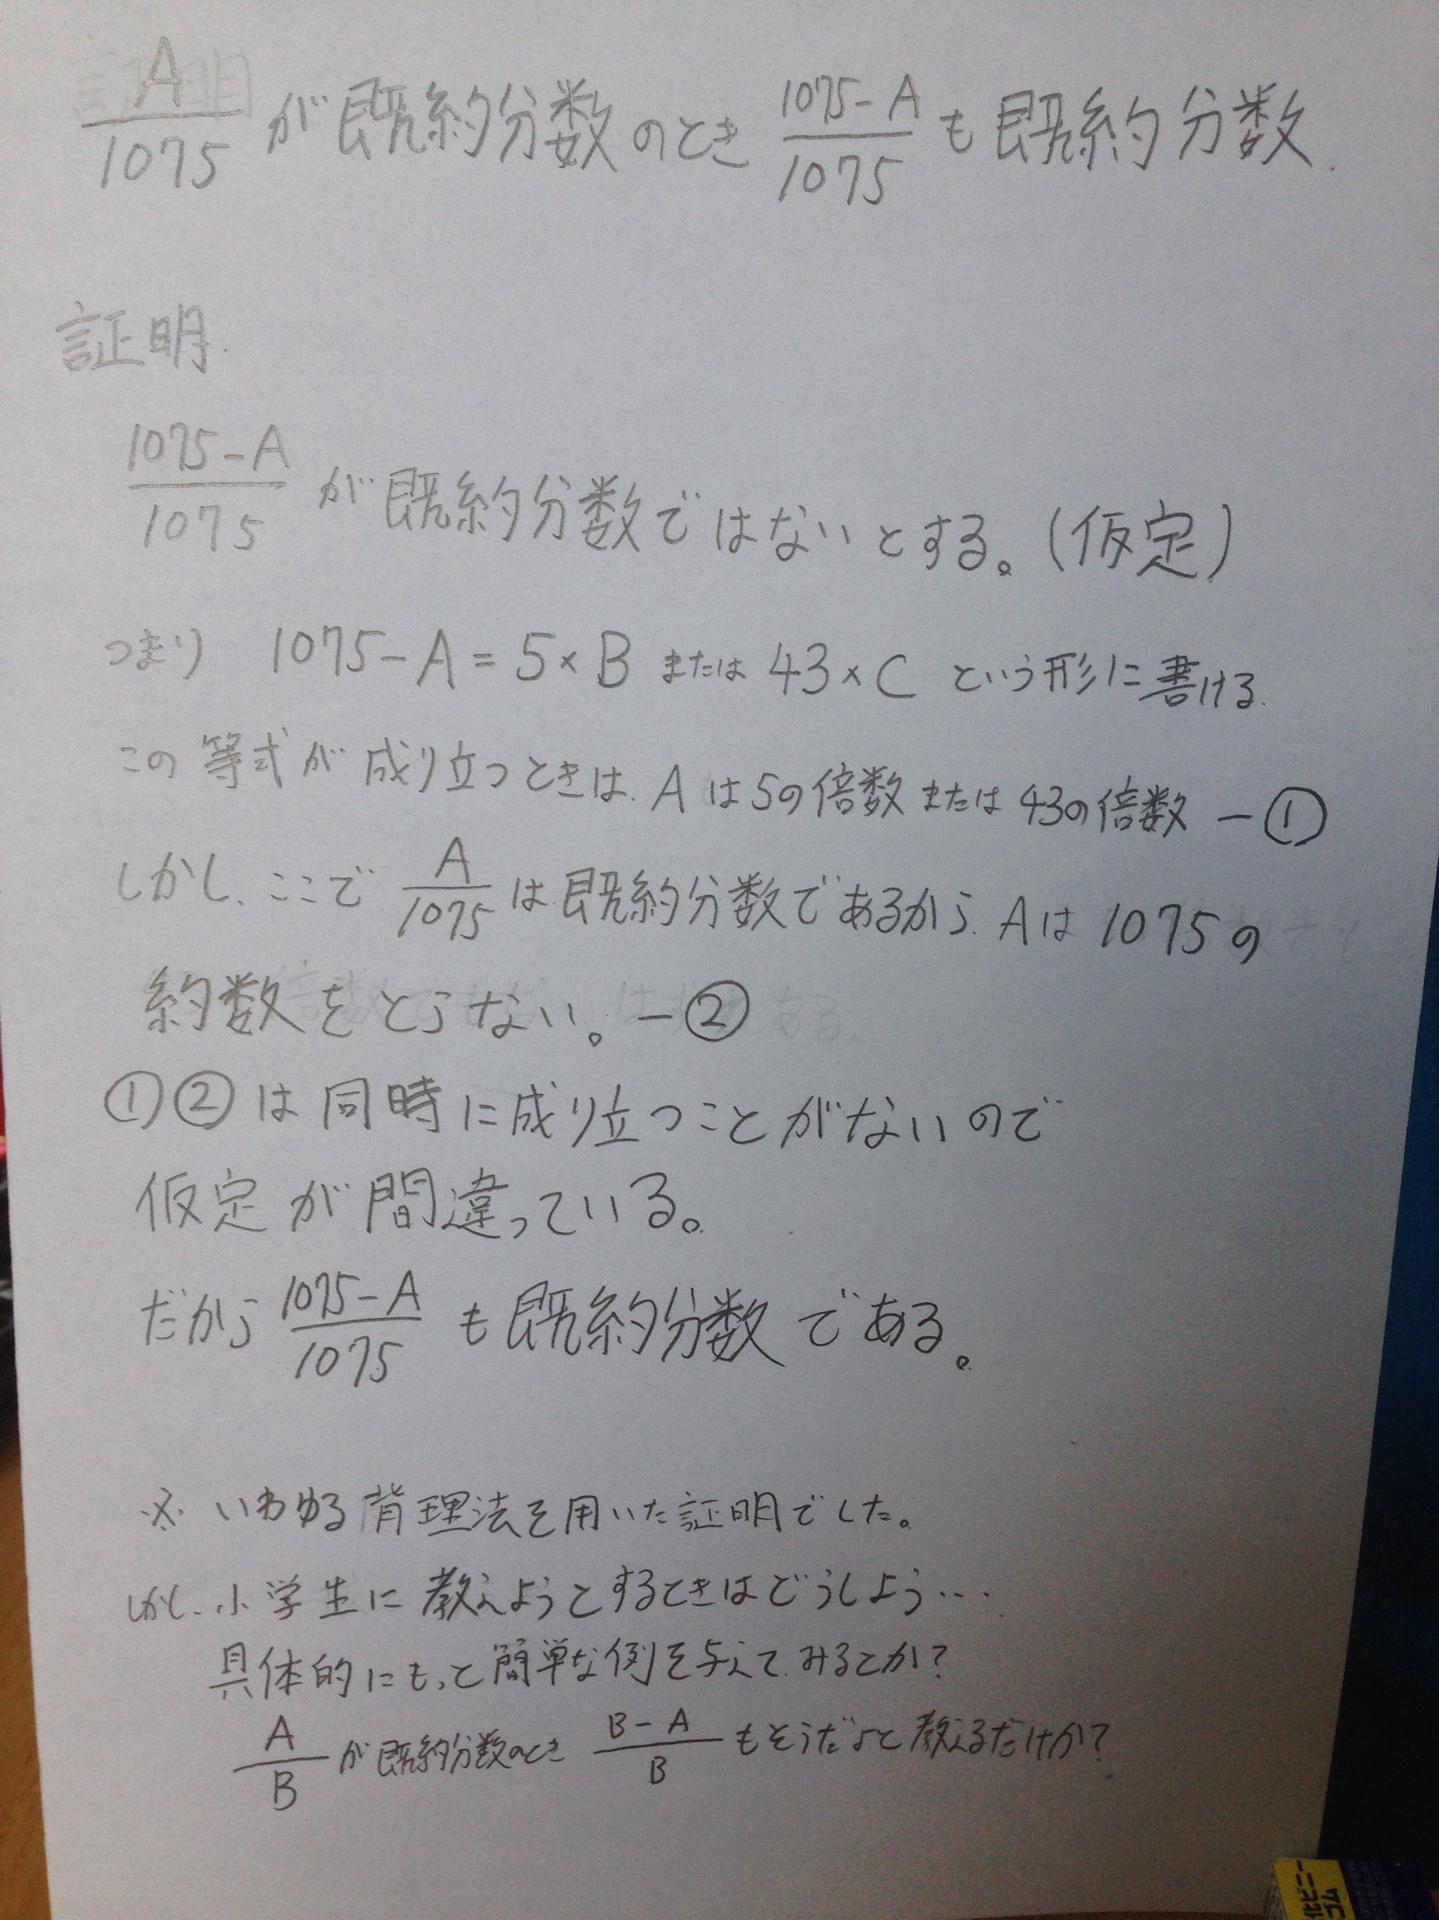 A/1075 が既約分数のとき (1075-A)/1075 も既約分数.
証明.
(1075-A)/1075 が既約分数ではないとする。(仮定)
つまり 1075-A=5×B または 43×C という形に書ける.
この等式が成り立つときは. Aは5の倍数または43の倍数 ー①
しかし、ここで A/1075 は既約分数であるから. Aは1075の
約数をとらない。ー②
①②は同時に成り立つことがないので
仮定が間違っている。
だから (1075-A)/1075 も既約分数である。
※いわゆる背理法を用いた証明でした。
しかし、小学生に教えようとするときはどうしよう…
具体的にもっと簡単な例を与えてみるとか?
A/B が既約分数のとき (B-A)/B もそうだよと教えるだけか?
化ビニー
ゴム